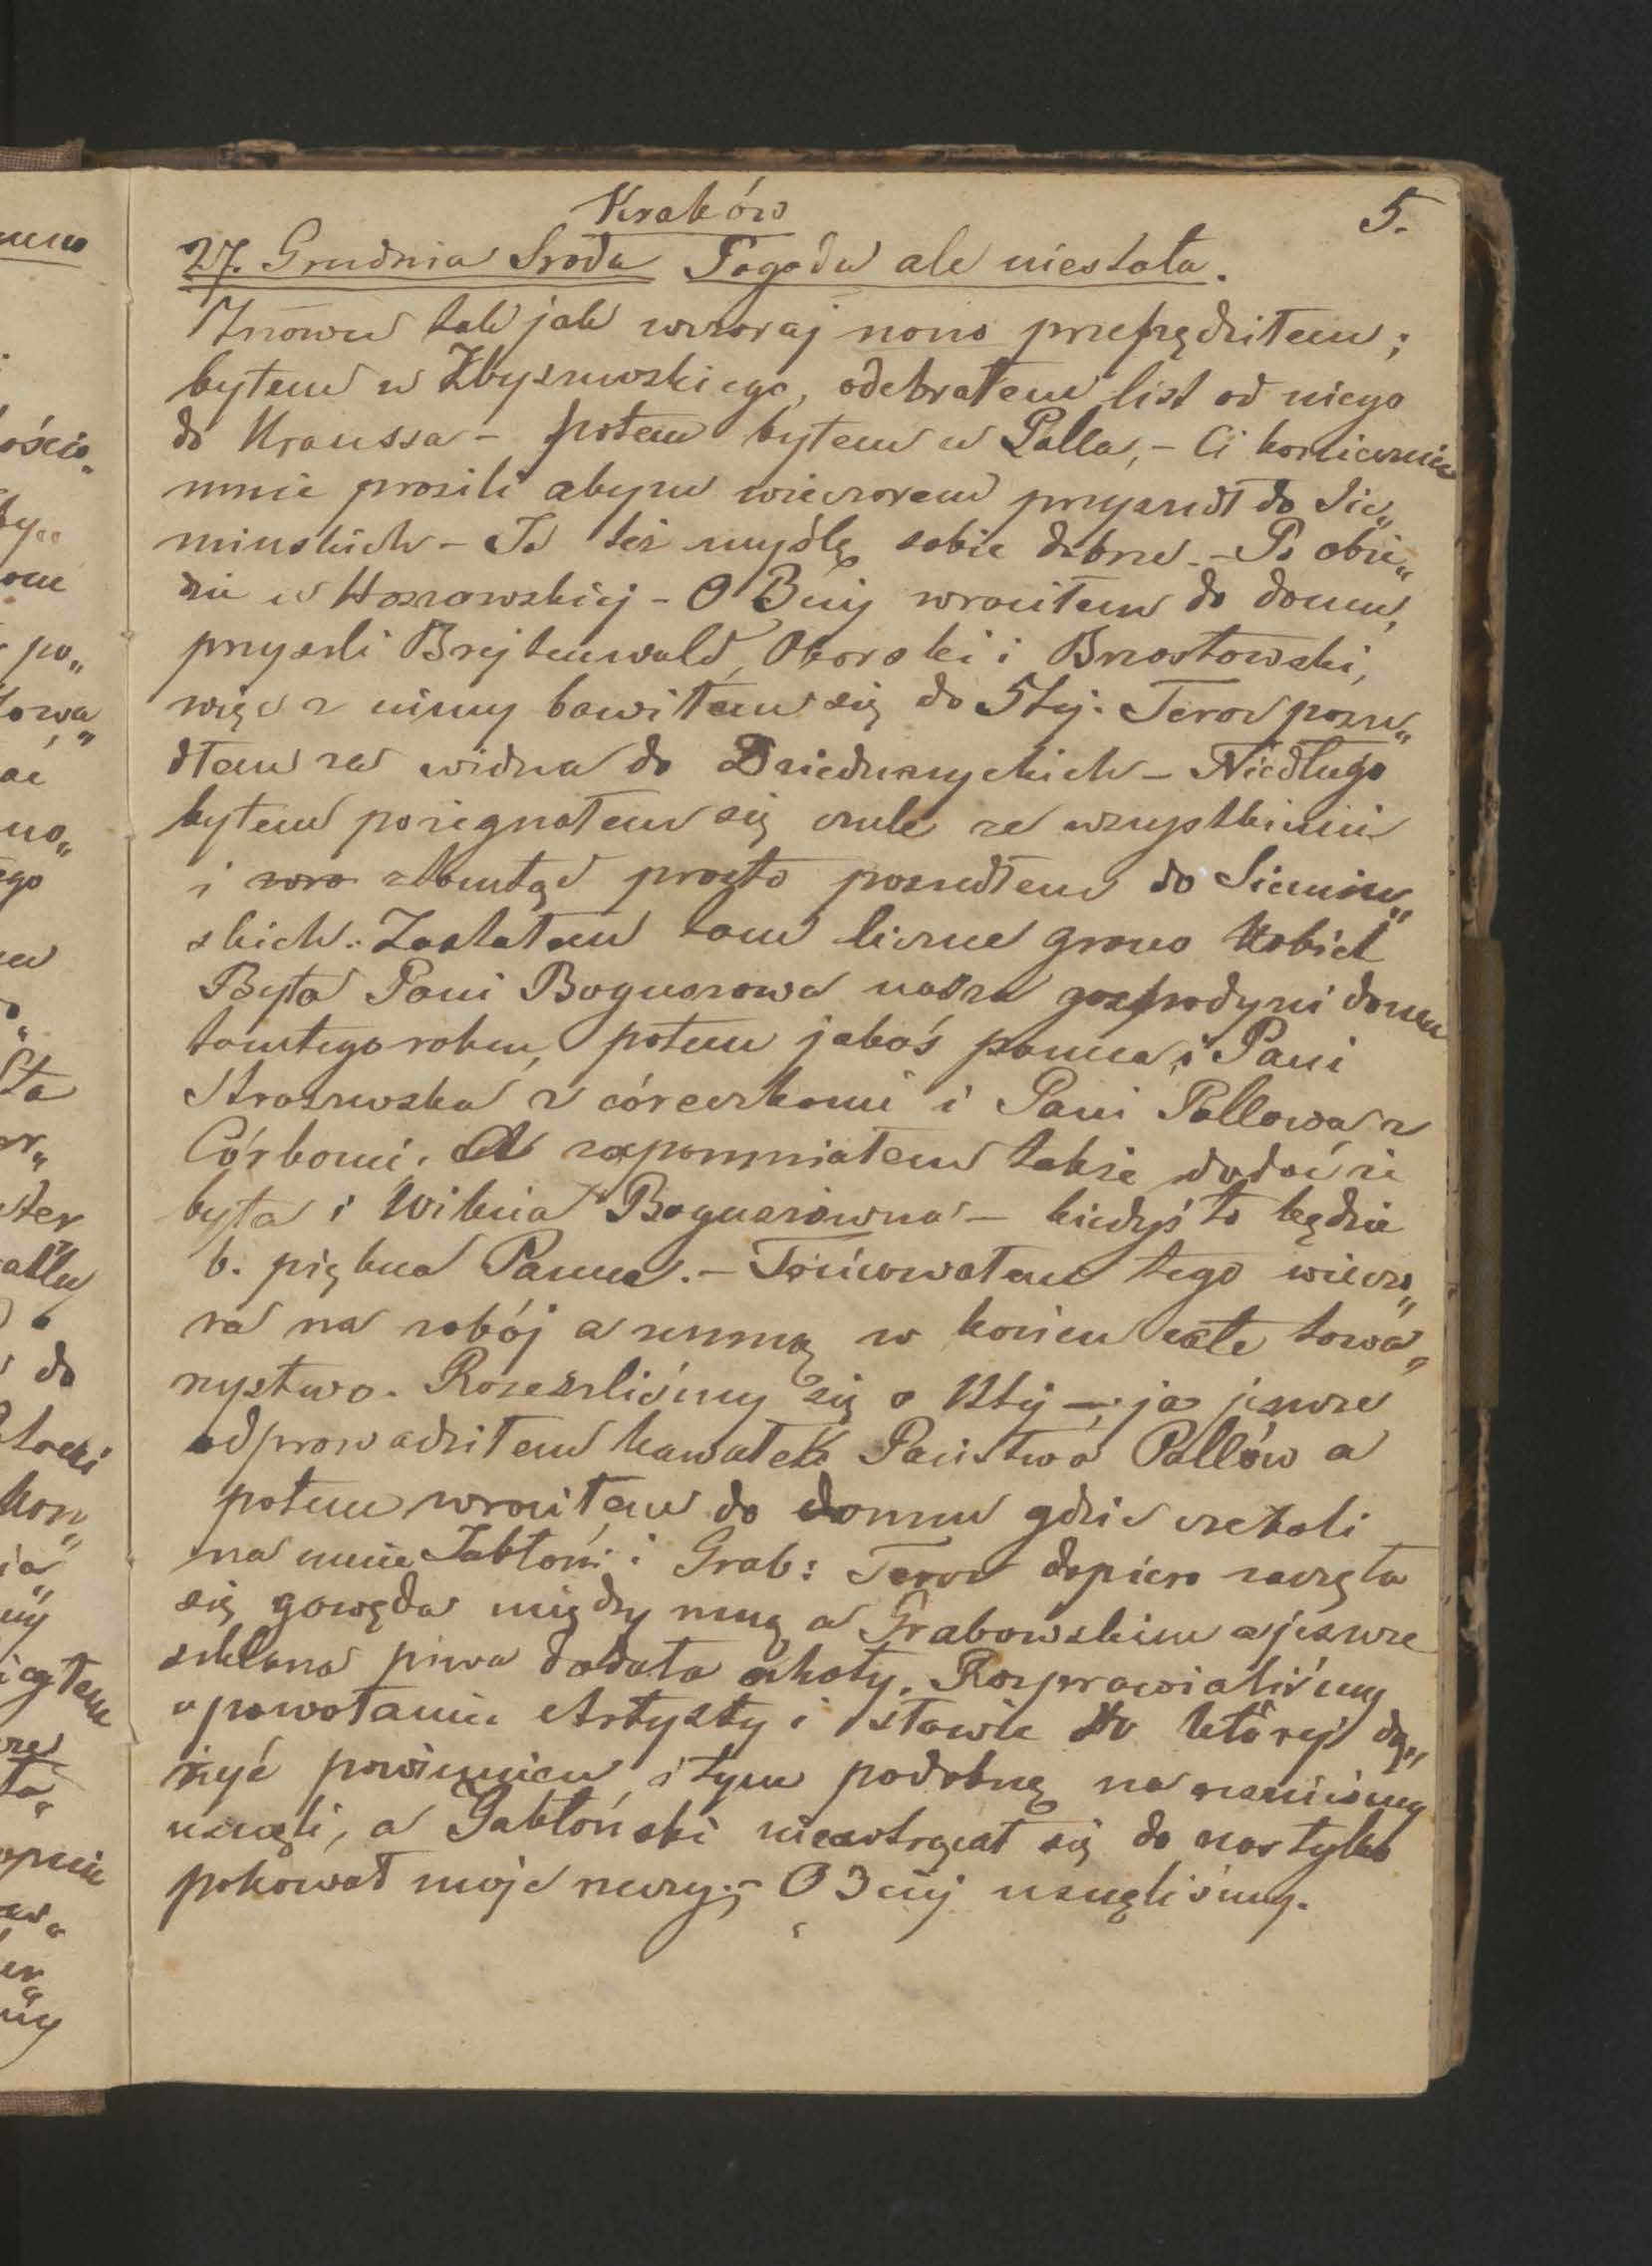 Kraków
5.
27. Grudnia Sroda Pogoda ale niestała.
Znowu tak jak wczoraj rano przepędziłem;
byłem u Zbyszewskiego, odebrałem list od niego
do Kraussa – potem byłem u Palla, – Ci koniecznie
mnie prosili abym wieczorem przyszedł do Sie„
minskich – Ja też myślę sobie dobrze. – Po obie„
dzie u Hoszowskiej – O 3ciej wrociłem do domu,
przyszli Brejtenwald, Oborski i Brzostowski,
więc z nimy bawiłem się do 5tej. Teraz posze„
dłem za widna do Dzieduszyckich – Niedługo
byłem pożegnałem się czule ze wszystkimi
i zara ztamtąd prosto poszedłem do Siemin„
skich. Zastałem tam liczne grono Kobiet
Była Pani Boguszowa nasza gospodyni domu
tamtego roku, potem jakaś panna, i Pani
Straszewska z córeczkami i Pani Pallowa z
Córkami. A zapomniałem także dodać że
była i Wikcia Boguszówna – kiedyś to będzie
b. piękna Panna. – Tańcowałem tego wieczo„
ra na zabój a zemną w końcu całe towa„
rzystwo. Rozeszliśmy się o 12tej – ja jeszcze
odprowadziłem kawałek Państwa Pallów a
potem wrociłem do domu gdzie czekali
na mnie Jabłoń: i Grab: Teraz dopiero zaczęła
się gawęda między mną a Grabowskim a jeszcze
szklana piwa dodała ochoty. Rozprawialiśmy
o powołaniu Artysty i sławie do której dą„
żyć powinien i tym podobne
usnęli, a Jabłoński niewtrącał się do nas tylko
pakował moje rzeczy; – O 3ciej usnęliśmy.